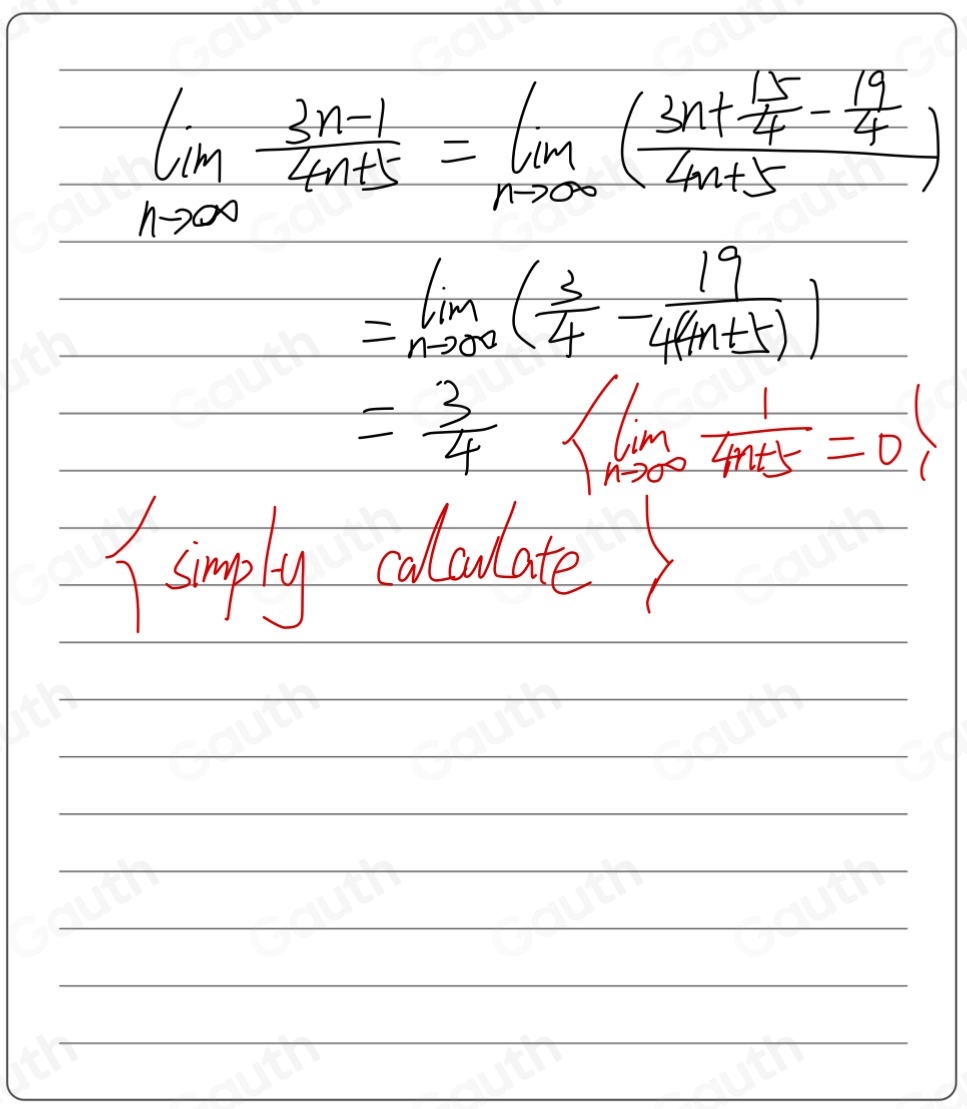 lim n→∞ (3n-1)/(4n+5) = lim n→∞ ((3n+15/4-19/4)/(4n+5))
= lim n→∞ (3/4 - 19/(4(4n+5)))
= 3/4 {lim n→∞ 1/(4n+5) = 0}
{simply calculate}